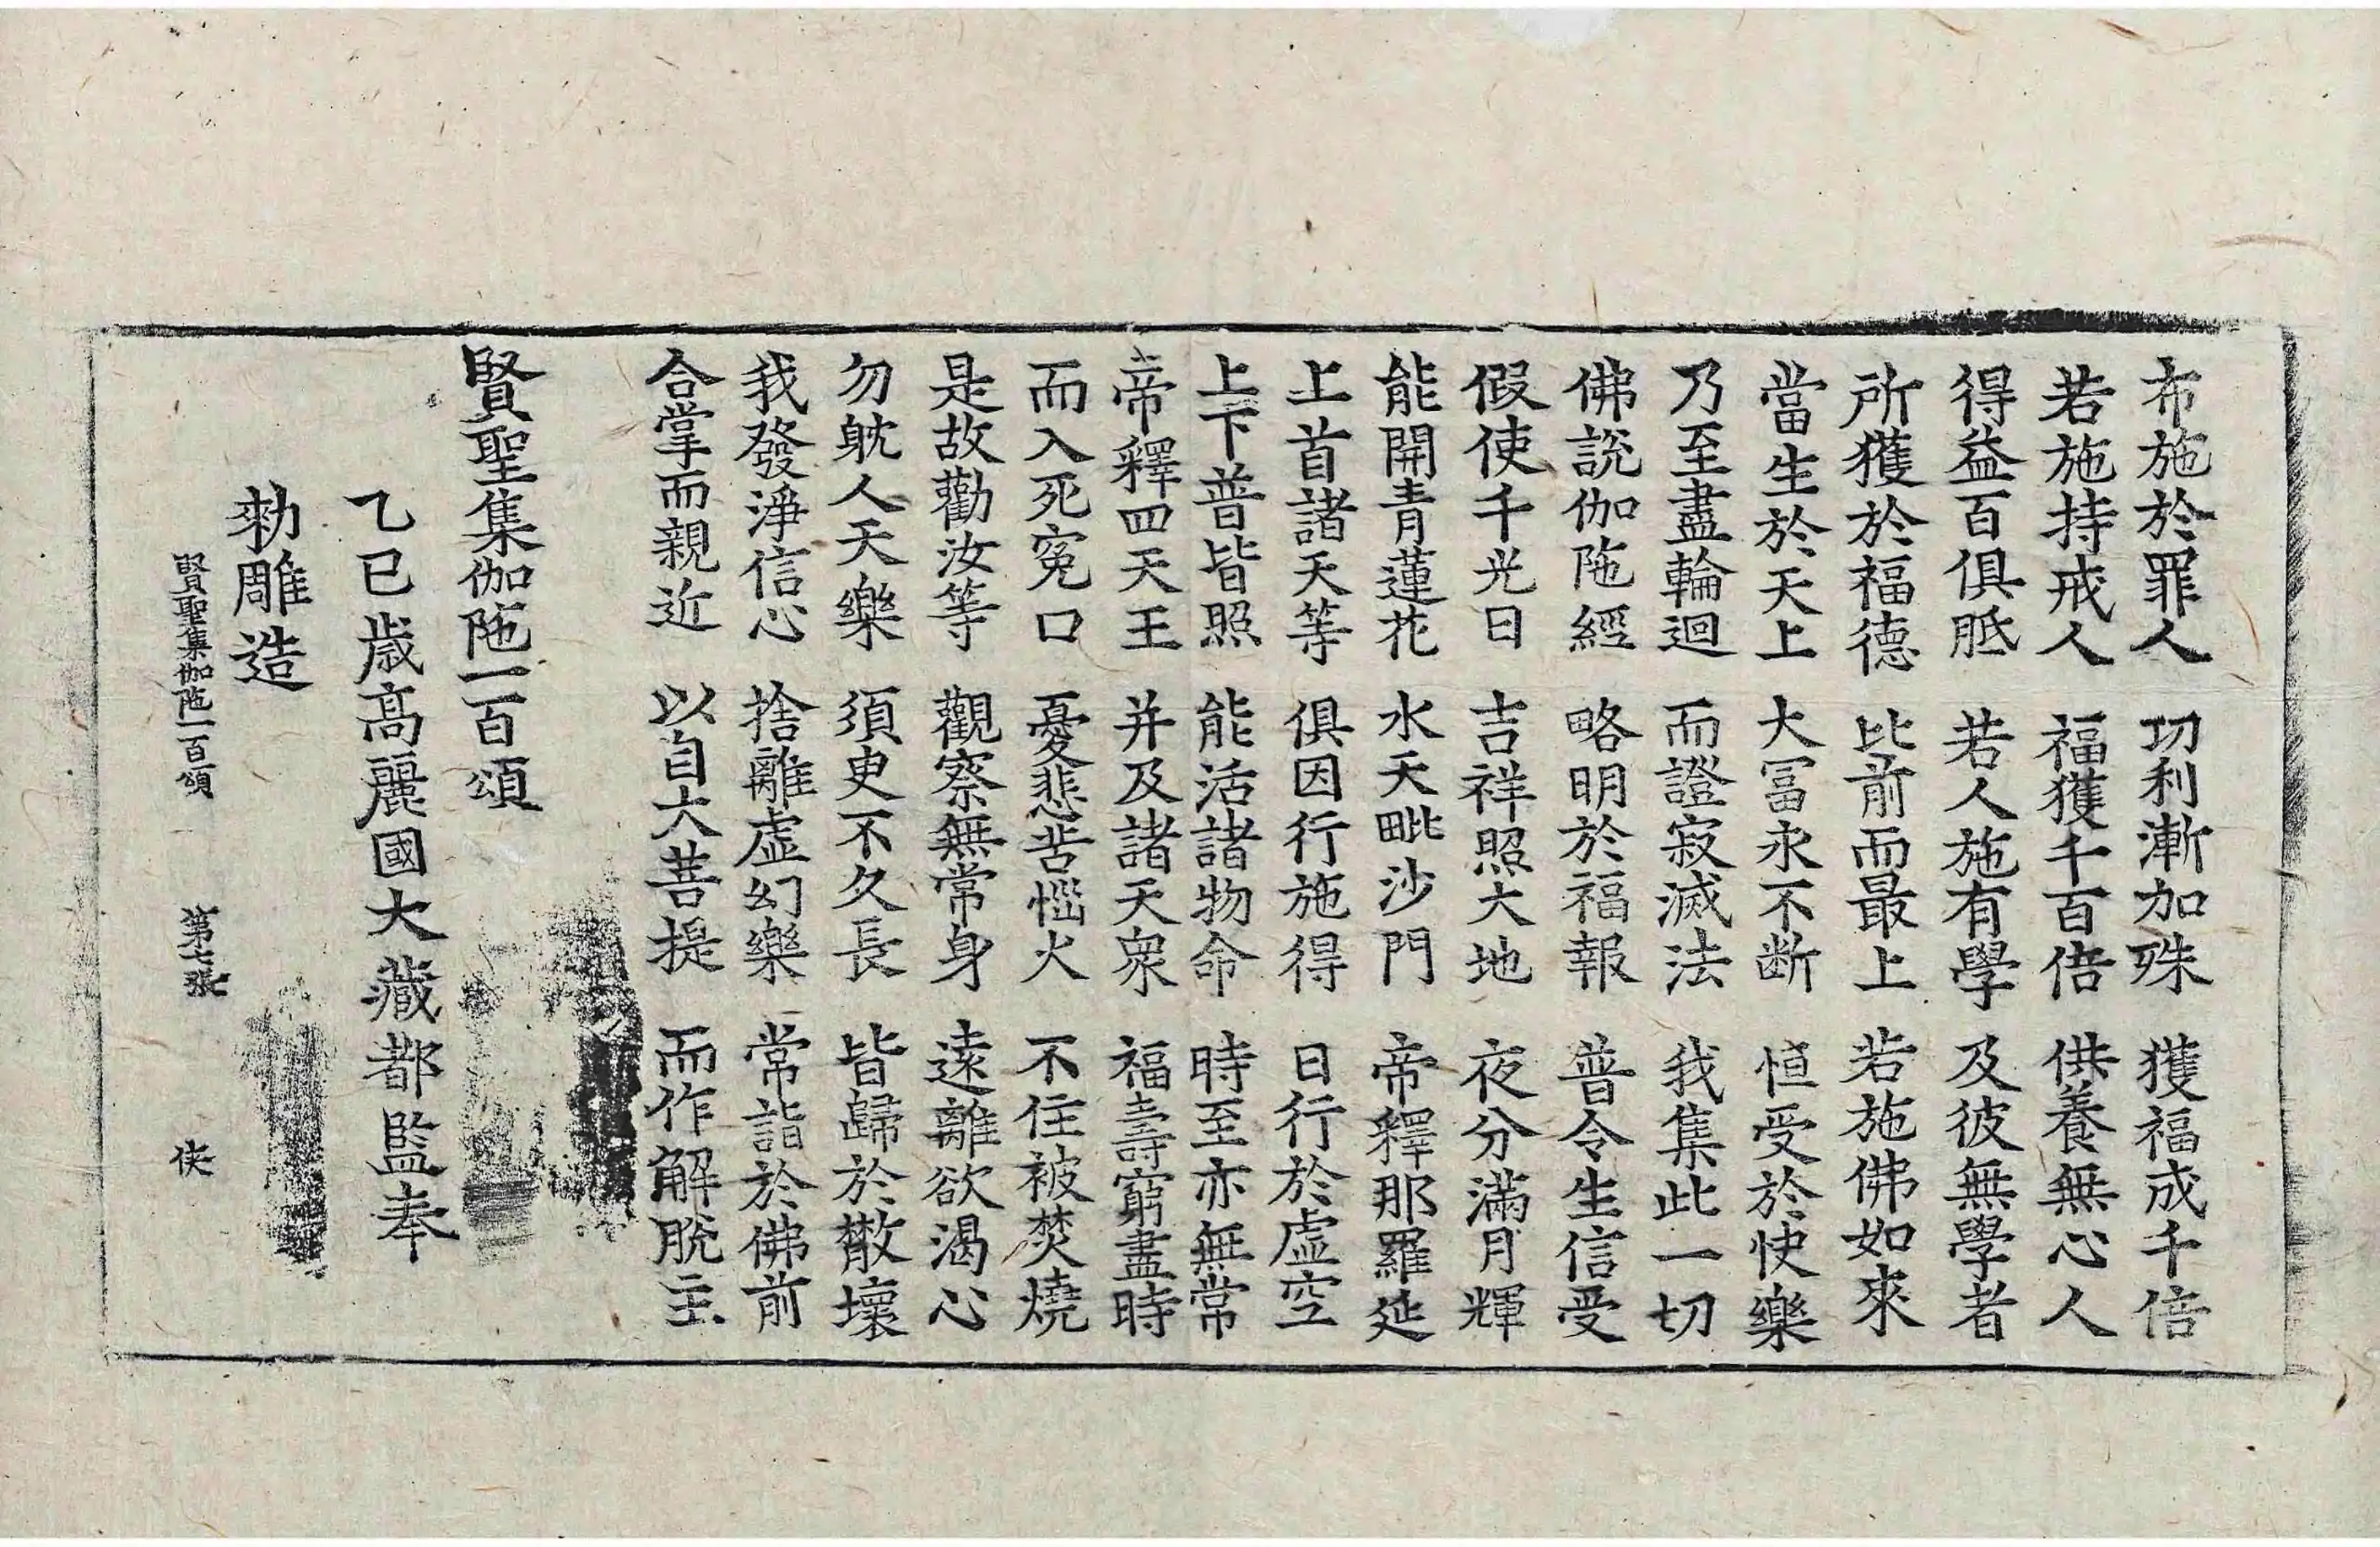 布施於罪人 功利漸加殊 獲福成千倍
若施持戒人 福獲千百倍 供養無心人
得益百俱胝 若人施有學 及彼無學者
所獲於福德 比前而最上 若施佛如來
當生於天上 大冨永不断 恒受於快樂
乃至盡輪迴 而證寂滅法 我集此一切
佛說伽陁經 略明於福報 普令生信受
假使千光日 吉祥照大地 夜分滿月輝
能開青蓮花 水天毗沙門 帝釋那羅延
上首諸天等 俱因行施得 日行於虛空
上下普皆照 能活諸物命 時至亦無常
帝釋四天王 并及諸天衆 福壽窮盡時
而入死寃口 憂悲苦惱火 不住被焚燒
是故勸汝等 觀察無常身 遠離欲渴心
勿躭人天樂 須臾不久長 皆歸於散壞
我發淨信心 捨離虛幻樂 常詣於佛前
合掌而親近 以自大菩提 而作解脫主
賢聖集伽陁一百頌
乙巳歲高麗國大藏都監奉
勑雕造
賢聖集伽陁一百頌 第七張 俠